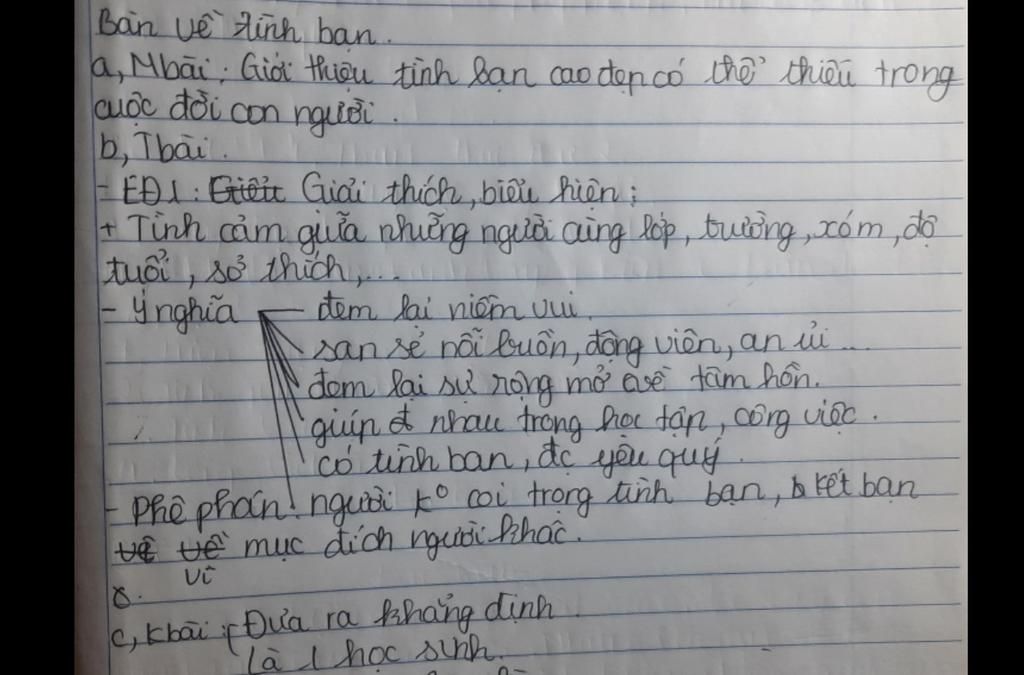 Bàn về tình bạn.
a, Mbài: Giới thiệu tình bạn cao đẹp có thể thiếu trong
cuộc đời con người.
b, Tbài.
- LĐ1: Giải thích, biểu hiện:
+ Tình cảm giữa những người cùng lớp, trường, xóm, độ
tuổi, sở thích,...
- Ý nghĩa đem lại niềm vui.
san sẻ nỗi buồn, động viên, an ủi...
đem lại sự rộng mở về tâm hồn.
giúp đ nhau trong học tập, công việc.
có tình bạn, đc yêu quý.
- Phê phán: người k° coi trọng tình bạn, kết bạn
mục đích người khác.
vì
c, Kbài: Đưa ra khẳng định
là 1 học sinh.